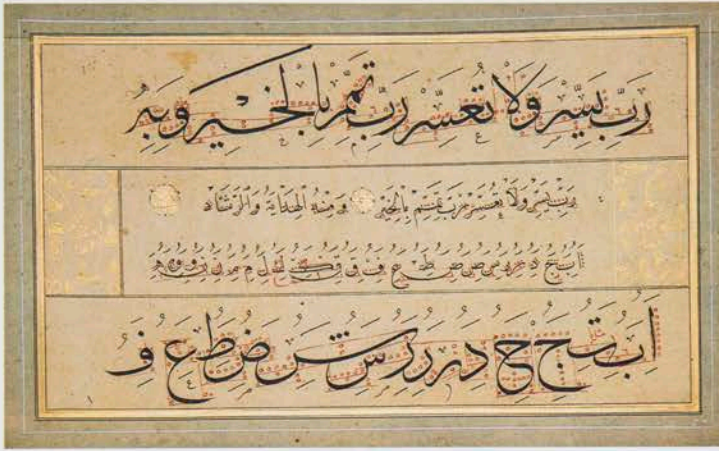 رَبِّ يَسِّرْ وَلَا تُعَسِّرْ رَبِّ تَمِّمْ بِالْخَيْرِ وَبِهِ
رَبِّ يَسِّرْ وَلَا تُعَسِّرْ رَبِّ تَمِّمْ بِالْخَيْرِ وَمِنْهُ الْهِدَايَةُ وَالرَّشَادُ
ا ب ج د ر س ص ط ع ف ق ك ل م ن و ه
ا ب ت ج ح د ر ر س ش ض ط ع ف